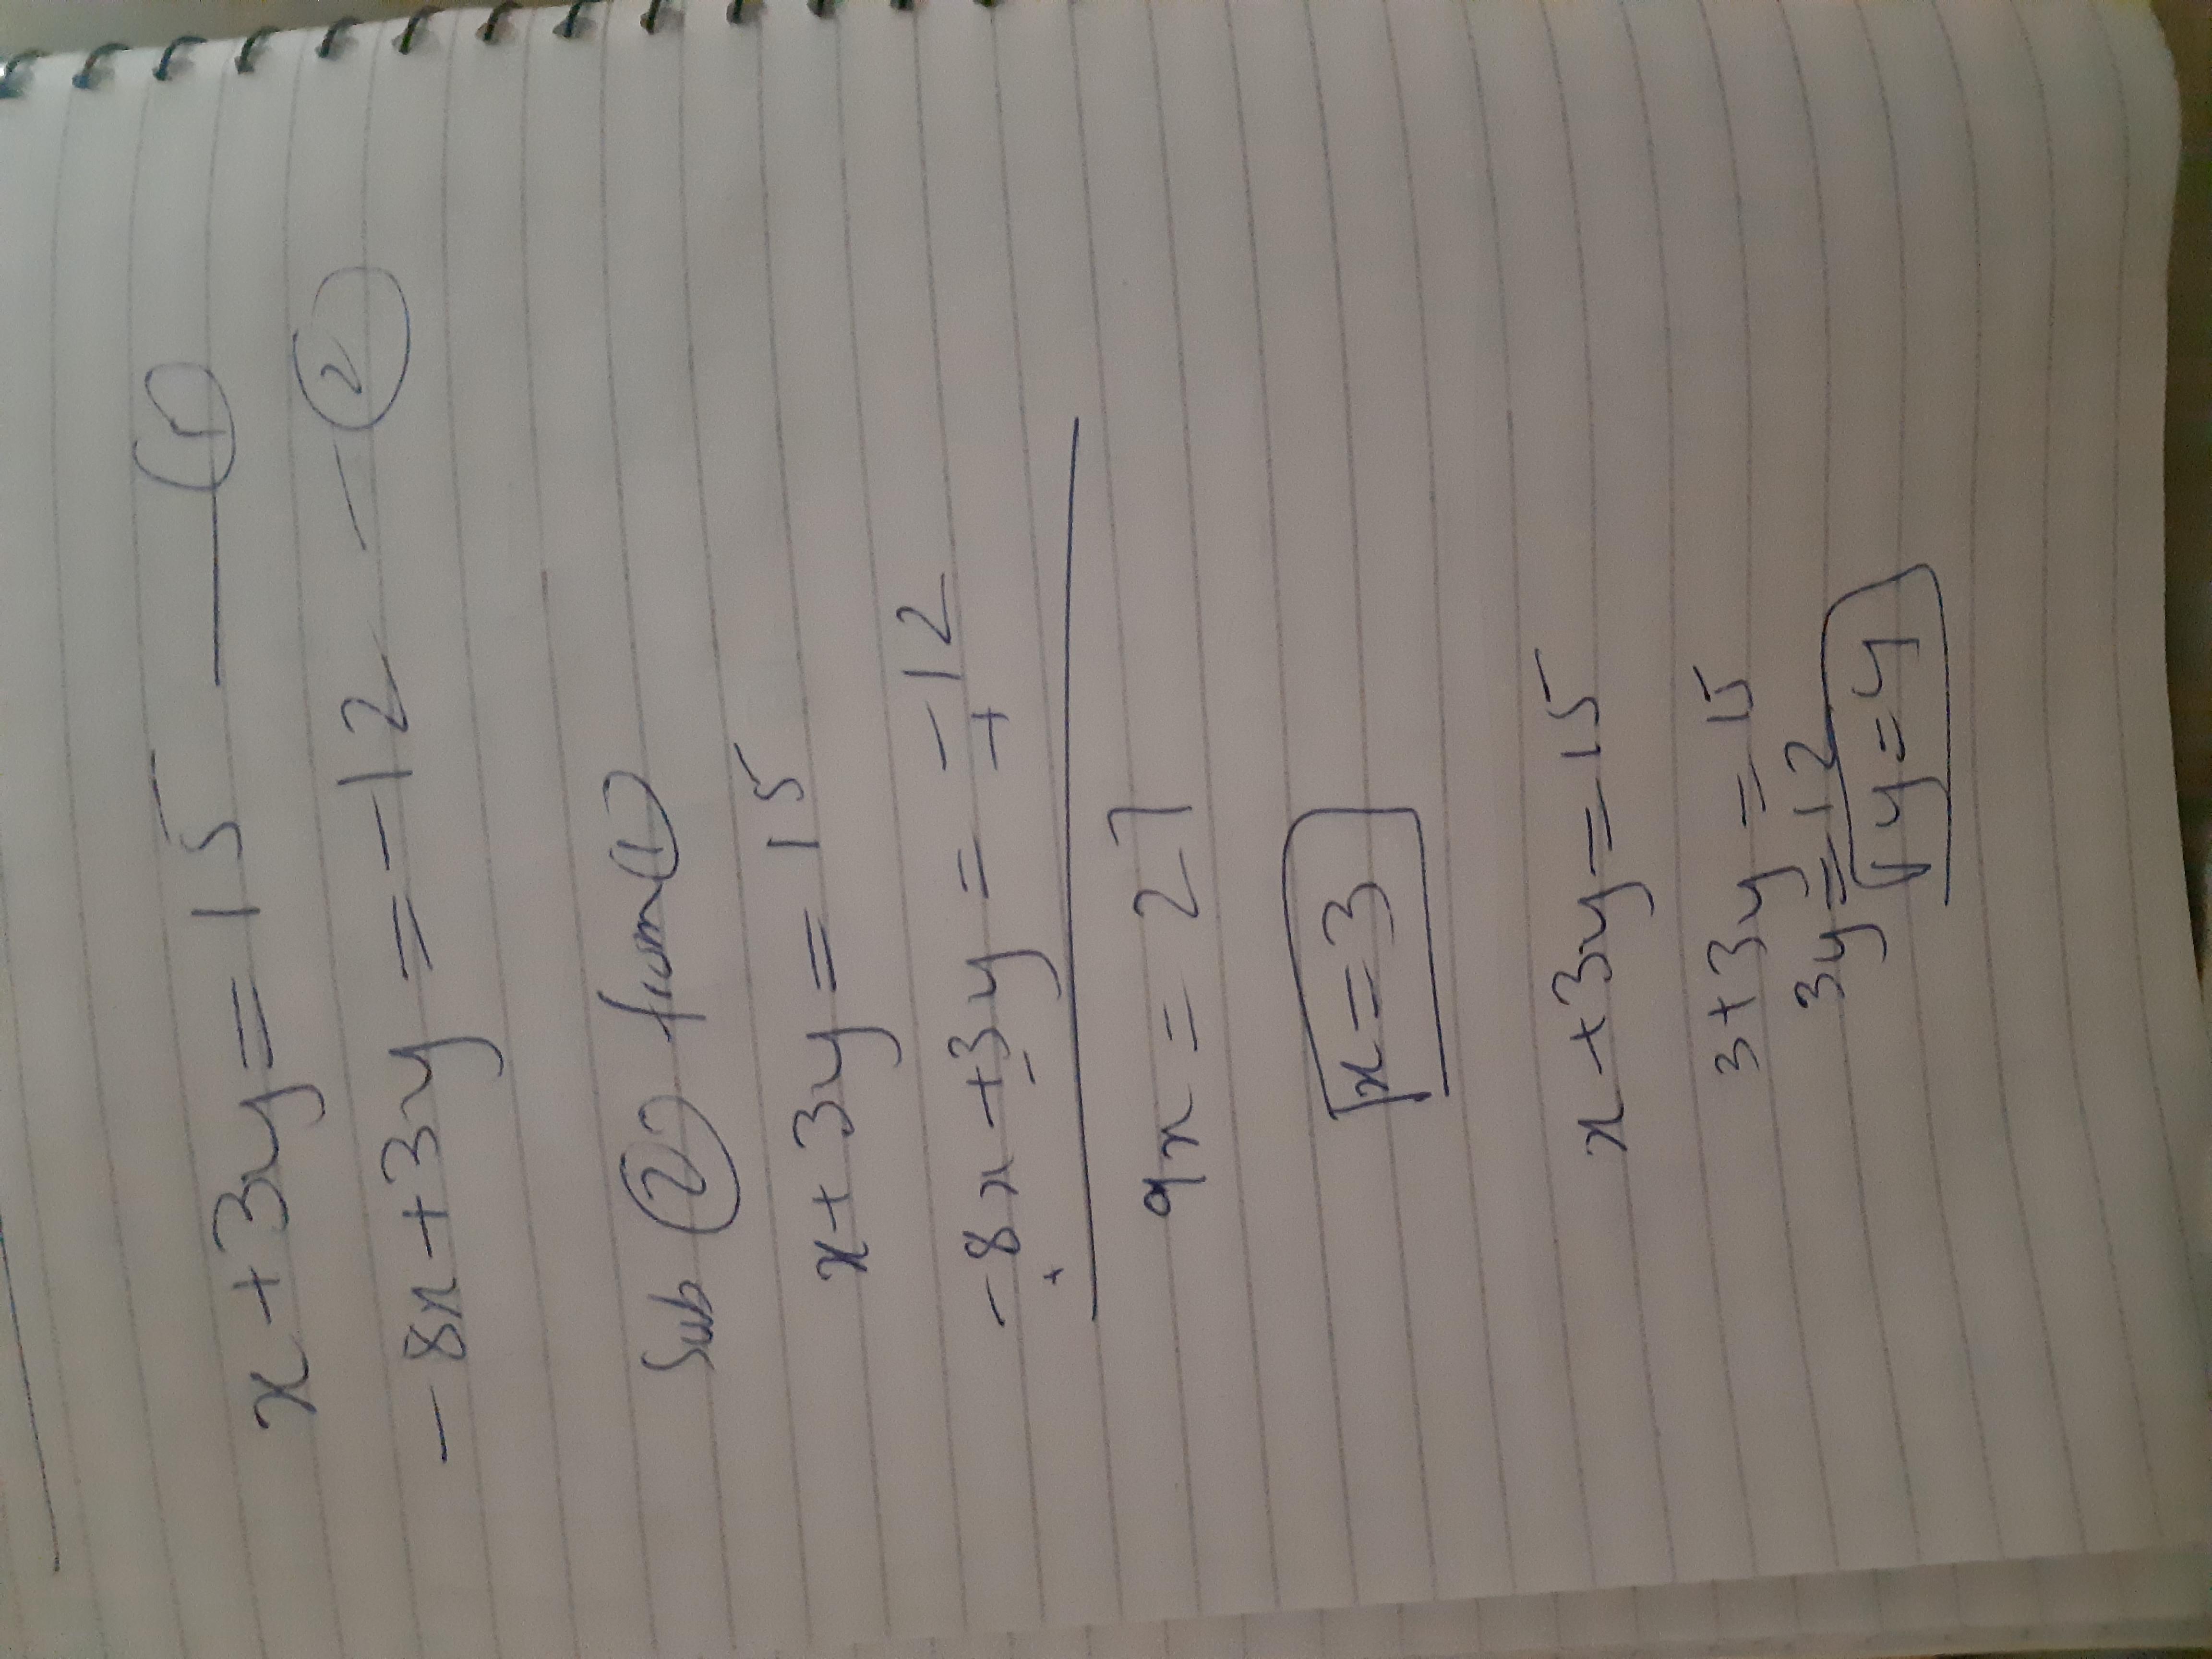 x + 3y = 15 — (1)
- 8x + 3y = -12 — (2)
Sub (2) from (1)
x + 3y = 15
- 8x + 3y = -12
+ - +
9x = 27
x = 3
x + 3y = 15
3 + 3y = 15
3y = 12
y = 4